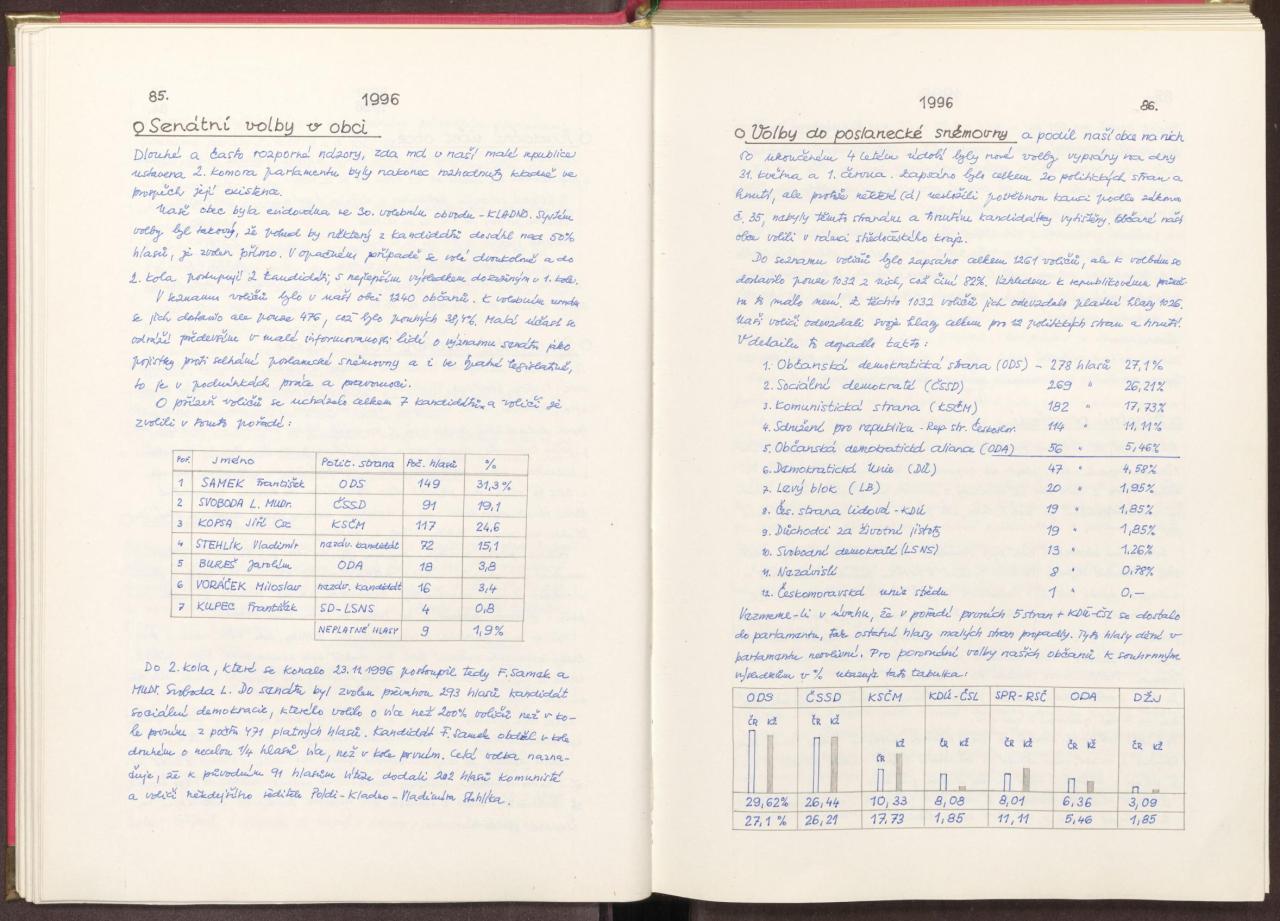 85.
1996
Senátní volby v obci
Dlouhé a často rozporné názory, zda má v naší malé republice
ustavena 2. komora parlamentu byly nakonec rozhodnuty kladně ve
prospěch její existence.
Naše obec byla evidována ve 30. volebním obvodu - KLADNO. Systém
volby byl takový, že pokud by některý z kandidátů dosáhl nad 50%
hlasů, je zvolen přímo. V opačném případě se volí dvoukolově a do
2. kola postupují 2 kandidáti, s nejlepším výsledkem dosaženým v 1. kole.
V seznamu voličů bylo v naší obci 1240 občanů. K volebním urnám
se jich dostavilo ale pouze 476, což bylo pouhých 38,4%. Malá účast se
odráží především v malé informovanosti lidí o významu senátu jako
pojistky proti selhání poslanecké sněmovny a i ve špatné legislativě,
to je v podmínkách práce a pravomoci.
O přízeň voličů se ucházelo celkem 7 kandidátů a voliči je
zvolili v tomto pořadí:
Poř. jméno Polit. strana Poč. hlasů %
1 SAMEK František ODS 149 31,3%
2 SVOBODA L. MUDr. ČSSD 91 19,1
3 KOPSA Jiří Csc KSČM 117 24,6
4 STEHLÍK Vladimír nezáv. kandidát 72 15,1
5 BUREŠ Jarolím ODA 18 3,8
6 VORÁČEK Miloslav nezáv. kandidát 16 3,4
7 KUPEC František SD-LSNS 4 0,8
NEPLATNÉ HLASY 9 1,9%
Do 2. kola, které se konalo 23.11.1996 postoupil tedy F. Samek a
MUDr. Svoboda L. Do senátu byl zvolen převahou 293 hlasů kandidát
sociální demokracie, kterého volilo o více než 200% voličů než v ko-
le prvním z počtu 471 platných hlasů. Kandidát F. Samek obdržel v kole
druhém o necelou 1/4 hlasů více, než v kole prvním. Celá volba nazna-
čuje, že k původním 91 hlasům vítěze dodali 202 hlasů komunisté
a voliči někdejšího ředitele Poldi-Kladno-Vladimíra Stehlíka.
1996
86.
Volby do poslanecké sněmovny a podíl naší obce na nich
Po ukončeném 4 letém údobí byly nové volby vypsány na dny
31. května a 1. června. Zapsáno bylo celkem 20 politických stran a
hnutí, ale protože některé (á) nesložili potřebnou kauci podle zákona
č. 35, nebyly těmto stranám a hnutím kandidátky vytištěny. Občané naší
obce volili v rámci středočeského kraje.
Do seznamu voličů bylo zapsáno celkem 1261 voličů, ale k volbám se
dostavilo pouze 1032 z nich, což činí 82%. Vzhledem k republikovému průmě-
ru to málo není. Z těchto 1032 voličů jich odevzdalo platné hlasy 1026.
Naši voliči odevzdali svoje hlasy celkem pro 12 politických stran a hnutí.
V detailu to dopadlo takto:
1. Občanská demokratická strana (ODS) - 278 hlasů 27,1%
2. Sociální demokraté (ČSSD) 269 " 26,21%
3. Komunistická strana (KSČM) 182 " 17,73%
4. Sdružení pro republiku - Rep. str. Českoslov. 114 " 11,11%
5. Občanská demokratická aliance (ODA) 56 " 5,46%
6. Demokratická Unie (DU) 47 " 4,58%
7. Levý blok (LB) 20 " 1,95%
8. Čes. strana lidová - KDU 19 " 1,85%
9. Důchodci za životní jistoty 19 " 1,85%
10. Svobodní demokraté (LSNS) 13 " 1,26%
11. Nezávislí 8 " 0,78%
12. Českomoravská unie středu 1 " 0,—
Vezmeme-li v úvahu, že v pořadí prvních 5 stran + KDU-ČSL se dostalo
do parlamentu, tak ostatní hlasy malých stran propadly. Tyto hlasy dění v
parlamentu neovlivní. Pro porovnání volby našich občanů k souhrnným
výsledkům v % ukazuje tato tabulka:
ODS ČSSD KSČM KDU-ČSL SPR-RSČ ODA DŽJ
ČR KŽ ČR KŽ ČR KŽ ČR KŽ ČR KŽ ČR KŽ ČR KŽ
29,62% 26,44 10,33 8,08 8,01 6,36 3,09
27,1% 26,21 17,73 1,85 11,11 5,46 1,85